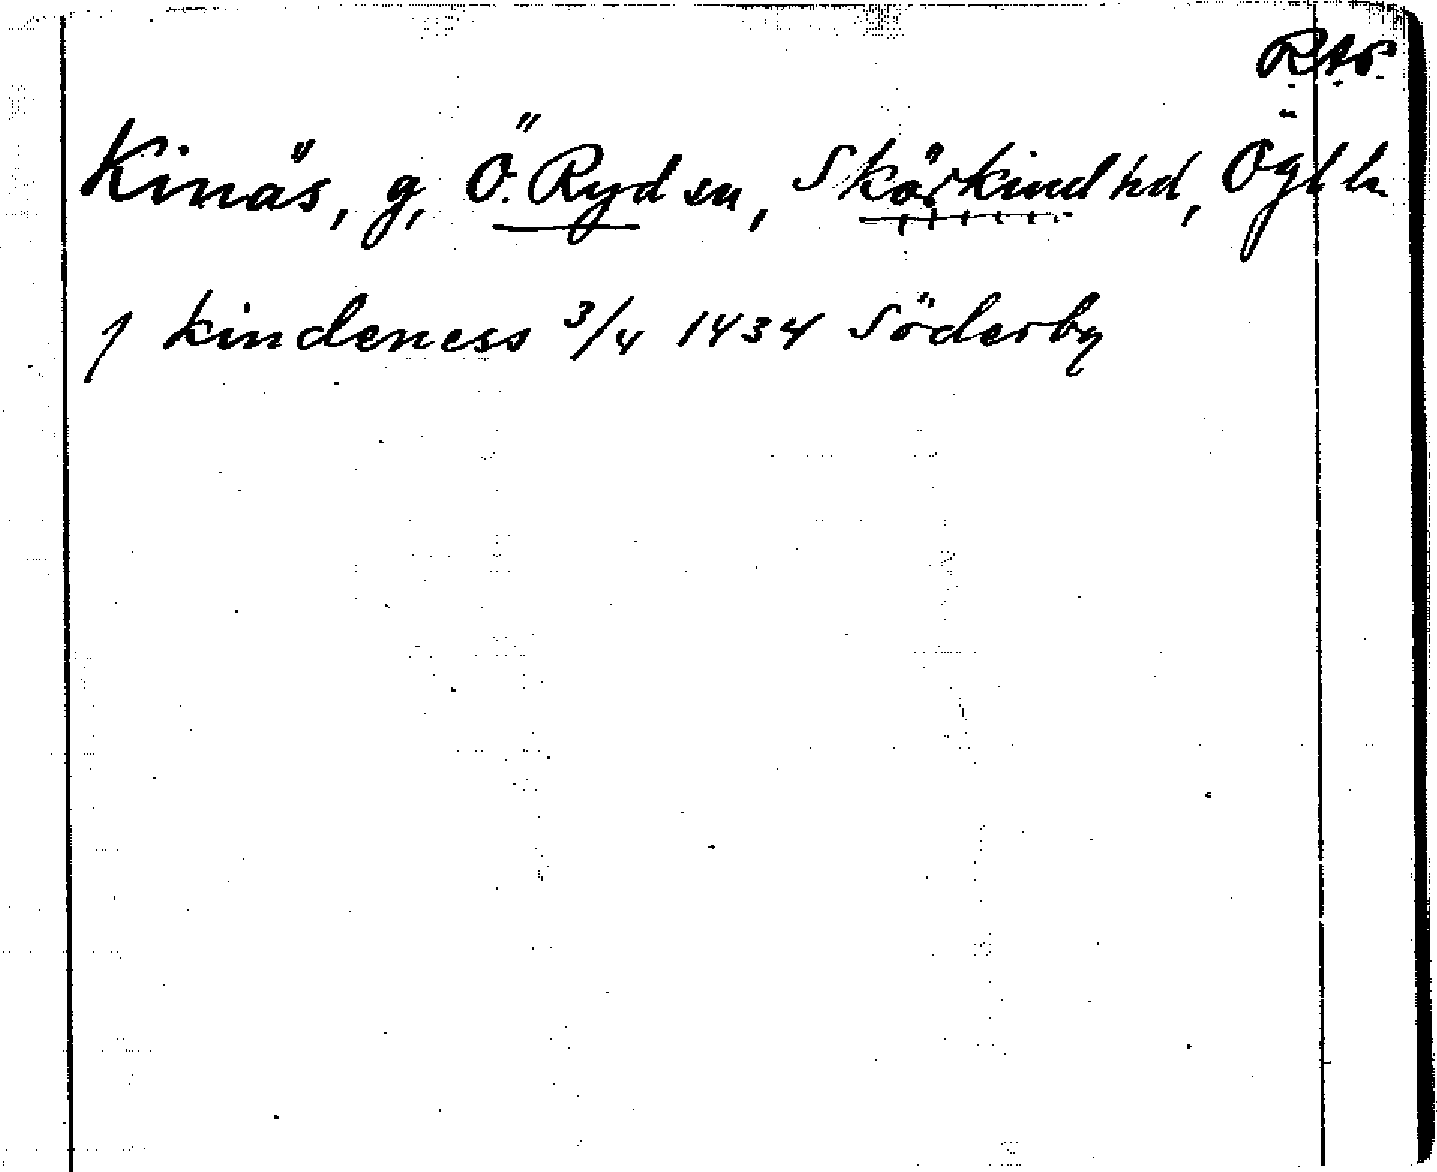 Kinäs, g, Ö. Ryd sn, Skärkind hd, Ögtl
j kindeness 3/4 1434 Söderby